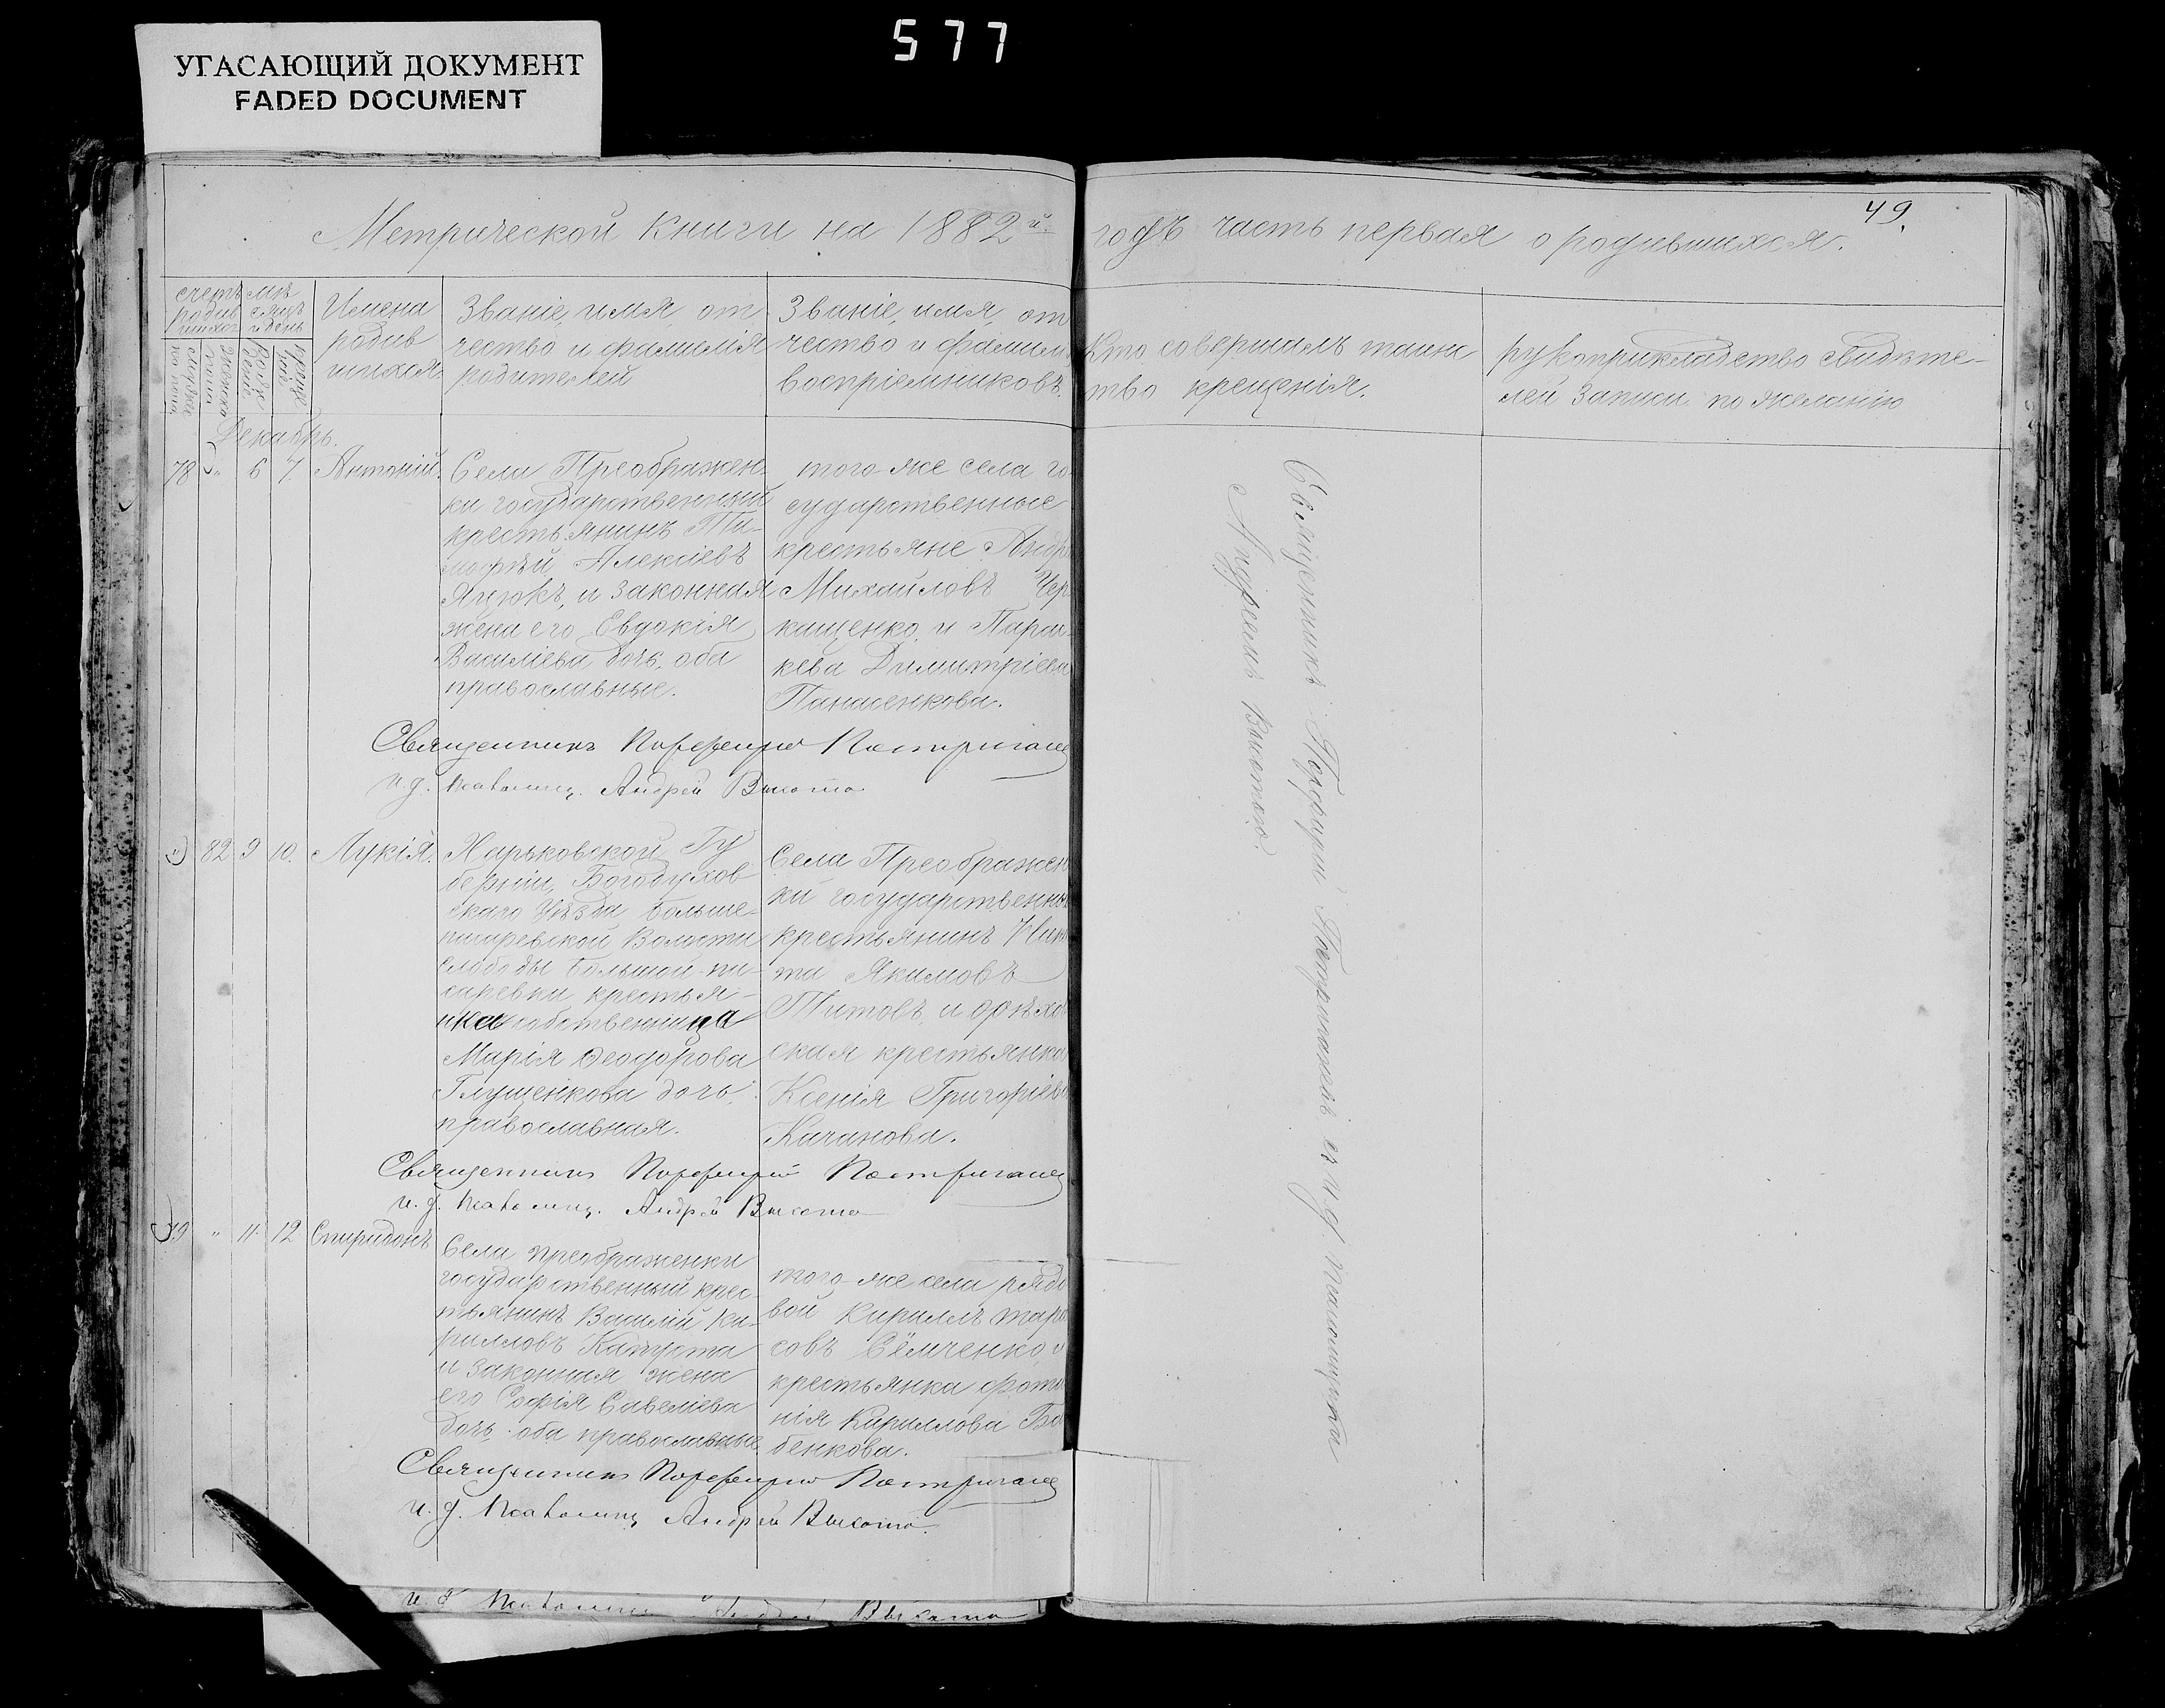 577
УГАСАЮЩИЙ ДОКУМЕНТ
FADED DOCUMENT
49.
Метрической книги на 1882й. годъ часть первая о родившихся.
счетъ родив шихся
мѣ сяцъ и день
мужеска пола
женска пола
рож денія
креще нія
Имена
родив
шихся.
Званіе, имя, от
чество и фамилія
родителей
Званіе, имя, от
чество и фамилія
воспріемниковъ.
Кто совершалъ таинс
тво крещенія.
рукоприкладство свидѣте-
лей записи по желанію
Декабрь.
78 " 6 7. Антоній.
Села Преображен-
ки государственный
крестьянинъ Ти-
мофѣй Алексіевъ
Яцюкъ, и законная
жена его Евдокія
Василіева дочь, оба
православные.
того-же села го-
сударственные
крестьяне Андр
Михайловъ Чер
кащенко, и Парас-
кева Димитріева
Панасенкова.
Священникъ Порфирій Постригань
и. д. псаломщ. Андрей Высота
" 82 9 10. Лукія.
Харьковской Гу
берніи, Богодухов
скаго Уѣзда Больше-
писаревской Волости
слободы Большой-пи-
саревки крестья-
нка собственница
Марія Ѳеодорова
Глущенкова дочь,
православная.
Села Преображен
ки государственный
крестьянинъ Ники
та Якимовъ
Титовъ и орѣхов
ская крестьянка
Ксенія Григоріева
Качанова.
Священникъ Порфирій Постригань
и. д. псаломщ. Андрей Высота
79 " 11. 12 Спиридонъ
Села Преображенки
государственный крес-
тьянинъ Василій Ки-
рилловъ Капуста
и законная жена
его Софія Савеліева
дочь, оба православные.
того-же села рядо
вой Кириллъ Тара
совъ Сёмченко и
крестьянка Фоти
нія Кириллова Ба
бенкова.
Священникъ Порфирій Постригань
и. д. псаломщ Андрей Высота.
Священникъ Порфирій Постригань съ и. д. псаломщика
Андреемъ Высотою.
и. д псаломщ Андрей Высота